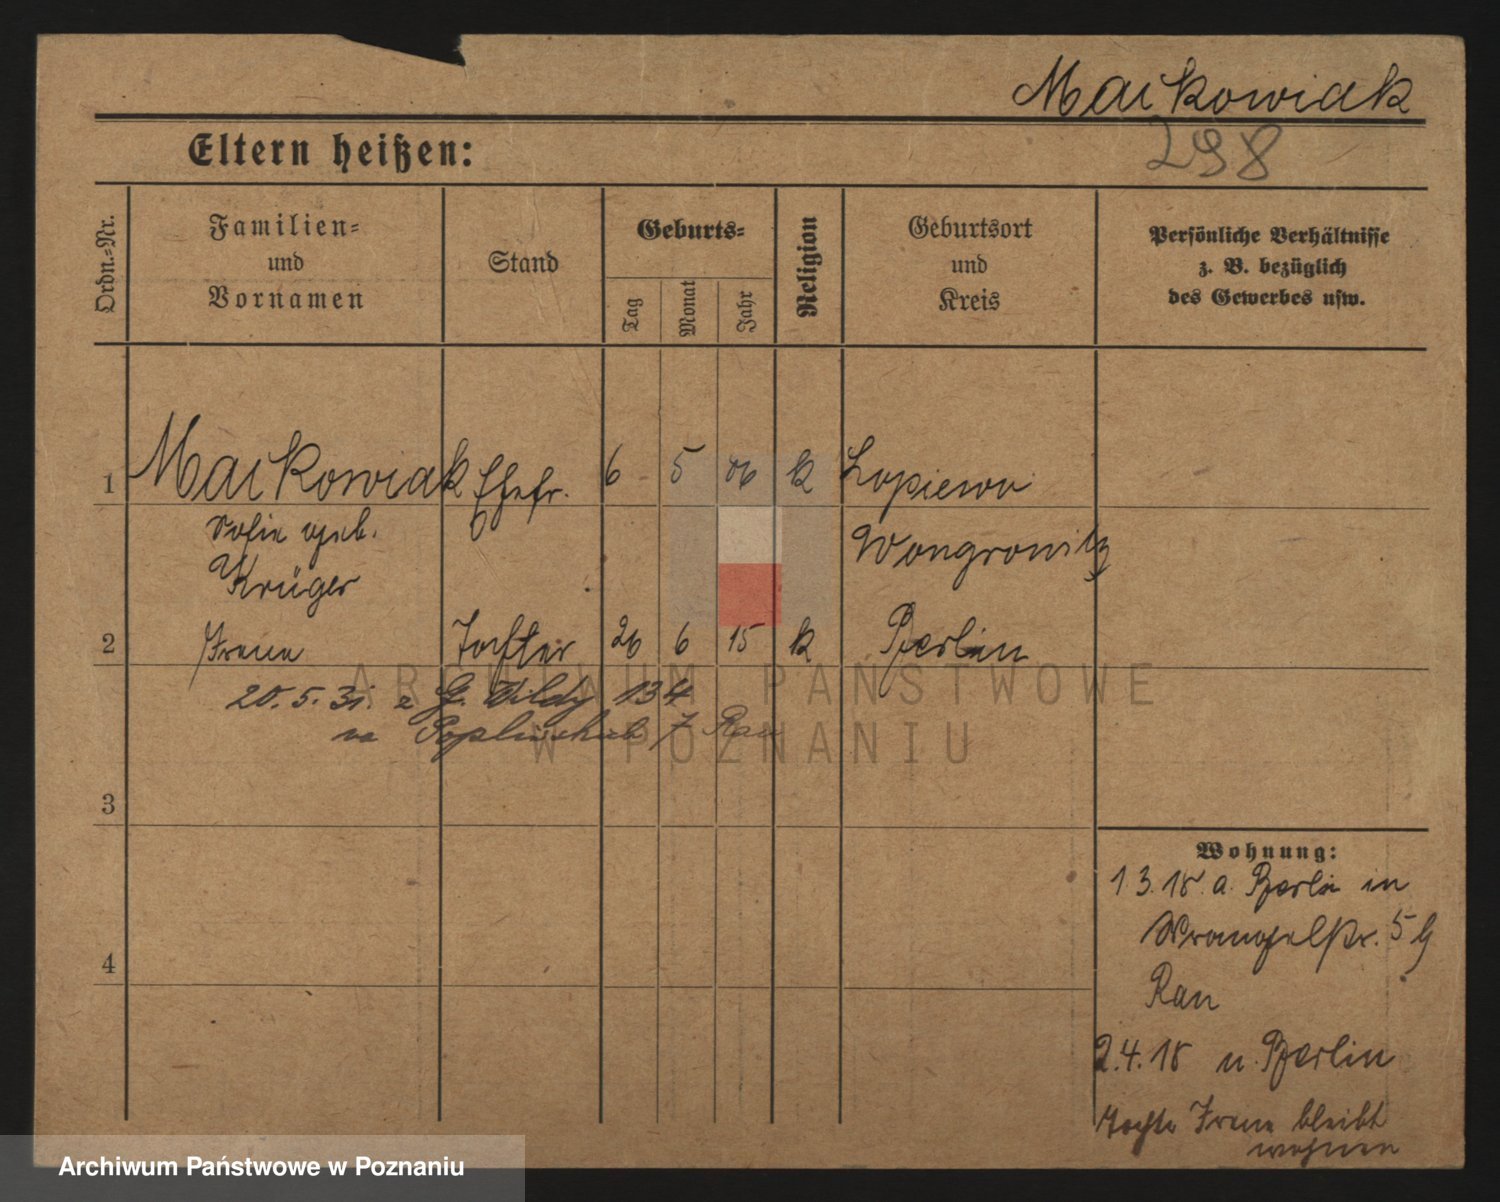 Markowiak
298
Eltern heißen:
Ordn.-Nr.
Familien-
und
Vornamen
Stand
Geburts-
Tag
Monat
Jahr
Religion
Geburtsort
und
Kreis
Persönliche Verhältnisse
z. B. bezüglich
des Gewerbes usw.
1 Markowiak Ehefr. 6 5 86 k Lopiewo
Sofie geb. Wongrowitz
Krüger
2 Irene Tochter 26 6 15 k Berlin
20.5.31. z G. Wildy 134
na 7 Rau
3
4
Wohnung:
1 3. 18. a. Berlin in
Wrangelstr. 5
Rau
2.4.18 n. Berlin
Tochter Irene bleibt
wohnen
ARCHIWUM PAŃSTWOWE
W POZNANIU
Archiwum Państwowe w Poznaniu